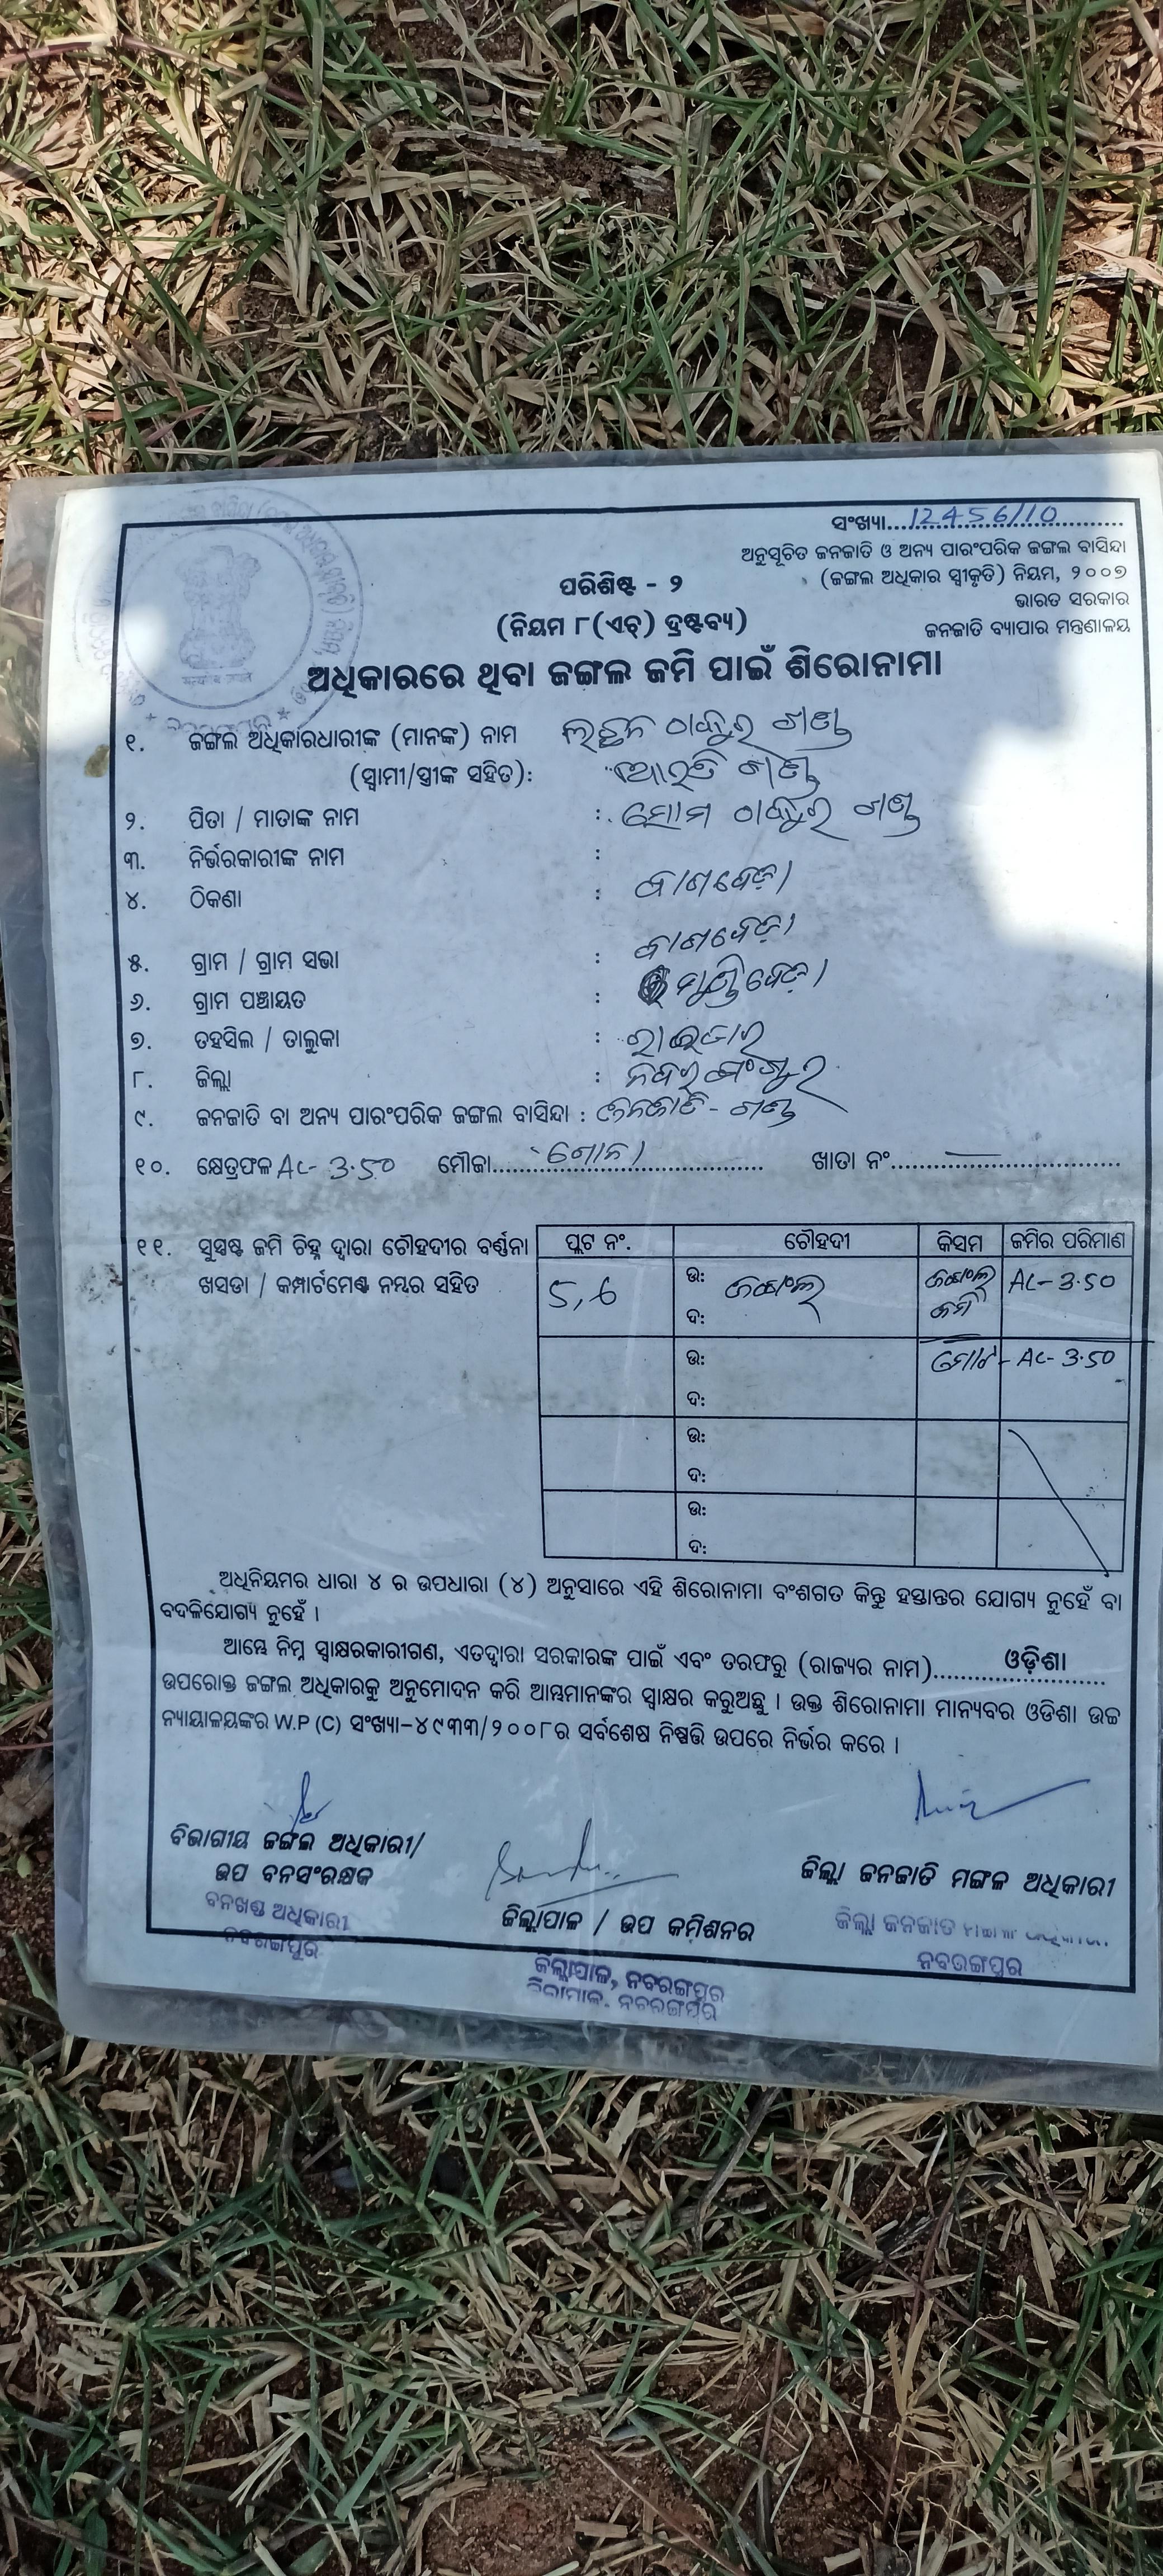 ସଂଖ୍ୟା....12456/10....
ଅନୁସୂଚିତ ଜନଜାତି ଓ ଅନ୍ୟ ପାରଂପରିକ ଜଙ୍ଗଲ ବାସିନ୍ଦା
(ଜଙ୍ଗଲ ଅଧିକାର ସ୍ଵୀକୃତି) ନିୟମ, ୨୦୦୭
ଭାରତ ସରକାର
ଜନଜାତି ବ୍ୟାପାର ମନ୍ତ୍ରଣାଳୟ
ପରିଶିଷ୍ଟ - ୨
(ନିୟମ ୮(ଏଚ୍) ଦ୍ରଷ୍ଟବ୍ୟ)
ଅଧିକାରରେ ଥିବା ଜଙ୍ଗଲ ଜମି ପାଇଁ ଶିରୋନାମା
୧. ଜଙ୍ଗଲ ଅଧିକାରଧାରୀଙ୍କ (ମାନଙ୍କ) ନାମ ଲଛନ ଠାକୁର ଗଣ୍ଡ
(ସ୍ଵାମୀ/ସ୍ତ୍ରୀଙ୍କ ସହିତ): ଆରତି ଗଣ୍ଡ
୨. ପିତା / ମାତାଙ୍କ ନାମ : ସୋମ ଠାକୁର ଗଣ୍ଡ
୩. ନିର୍ଭରକାରୀଙ୍କ ନାମ :
୪. ଠିକଣା : ବାଣବେଡ଼ା
୫. ଗ୍ରାମ / ଗ୍ରାମ ସଭା : ବାଣବେଡ଼ା
୬. ଗ୍ରାମ ପଞ୍ଚାୟତ :
୭. ତହସିଲ / ତାଲୁକା : ରାଇଘର
୮. ଜିଲ୍ଲା : ନବରଂଗପୁର
୯. ଜନଜାତି ବା ଅନ୍ୟ ପାରଂପରିକ ଜଙ୍ଗଲ ବାସିନ୍ଦା : ଜନଜାତି - ଗଣ୍ଡ
୧୦. କ୍ଷେତ୍ରଫଳ AC- 3.50 ମୌଜା........ ଖାତା ନଂ....—....
୧୧. ସୁସ୍ପଷ୍ଟ ଜମି ଚିହ୍ନ ଦ୍ୱାରା ଚୌହଦୀର ବର୍ଣ୍ଣନା
ଖସଡା / କମ୍ପାର୍ଟମେଣ୍ଟ ନମ୍ବର ସହିତ
ପ୍ଲଟ ନଂ. ଚୌହଦୀ କିସମ ଜମିର ପରିମାଣ
5,6 ଉ: ଜଙ୍ଗଲ ଜଙ୍ଗଲ AC-3.50
ଦ: ଜମି
ଉ: ମୋଟ - AC-3.50
ଦ:
ଉ:
ଦ:
ଉ:
ଦ:
ଅଧିନିୟମର ଧାରା ୪ ର ଉପଧାରା (୪) ଅନୁସାରେ ଏହି ଶିରୋନାମା ବଂଶଗତ କିନ୍ତୁ ହସ୍ତାନ୍ତର ଯୋଗ୍ୟ ନୁହେଁ ବା
ବଦଳିଯୋଗ୍ୟ ନୁହେଁ ।
ଆମ୍ଭେ ନିମ୍ନ ସ୍ୱାକ୍ଷରକାରୀଗଣ, ଏତଦ୍ଦ୍ୱାରା ସରକାରଙ୍କ ପାଇଁ ଏବଂ ତରଫରୁ (ରାଜ୍ୟର ନାମ)........ଓଡ଼ିଶା........
ଉପରୋକ୍ତ ଜଙ୍ଗଲ ଅଧିକାରକୁ ଅନୁମୋଦନ କରି ଆମ୍ଭମାନଙ୍କର ସ୍ୱାକ୍ଷର କରୁଅଛୁ । ଉକ୍ତ ଶିରୋନାମା ମାନ୍ୟବର ଓଡିଶା ଉଚ୍ଚ
ନ୍ୟାୟାଳୟଙ୍କର W.P (C) ସଂଖ୍ୟା-୪୯୩୩/୨୦୦୮ର ସର୍ବଶେଷ ନିଷ୍ପତ୍ତି ଉପରେ ନିର୍ଭର କରେ ।
ବିଭାଗୀୟ ଜଙ୍ଗଲ ଅଧିକାରୀ/
ଉପ ବନସଂରକ୍ଷକ
ବନଖଣ୍ଡ ଅଧିକାରୀ
ଜିଲ୍ଲାପାଳ / ଉପ କମିଶନର
ଜିଲ୍ଲାପାଳ, ନବରଙ୍ଗପୁର
ଜିଲ୍ଲା ଜନଜାତି ମଙ୍ଗଳ ଅଧିକାରୀ
ଜିଲ୍ଲା ଜନଜାତି
ନବରଙ୍ଗପୁର